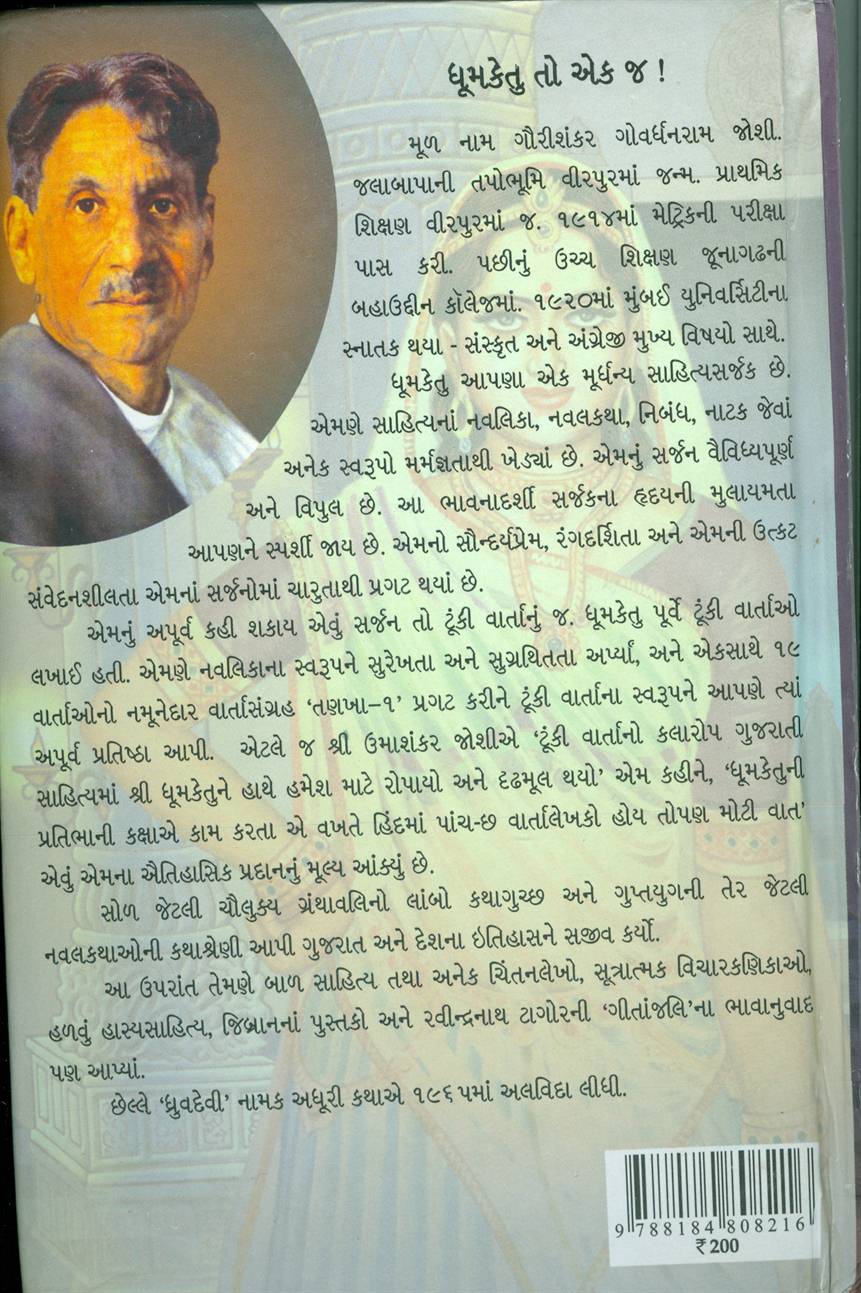 ધૂમકેતુ તો એક જ !
મૂળ નામ ગૌરીશંકર ગોવર્ધનરામ જોશી.
જલાબાપાની તપોભૂમિ વીરપુરમાં જન્મ. પ્રાથમિક
શિક્ષણ વીરપુરમાં જ. ૧૯૧૪માં મેટ્રિકની પરીક્ષા
પાસ કરી. પછીનું ઉચ્ચ શિક્ષણ જૂનાગઢની
બહાઉદ્દીન કૉલેજમાં. ૧૯૨૦માં મુંબઈ યુનિવર્સિટીના
સ્નાતક થયા - સંસ્કૃત અને અંગ્રેજી મુખ્ય વિષયો સાથે.
ધૂમકેતુ આપણા એક મૂર્ધન્ય સાહિત્યસર્જક છે.
એમણે સાહિત્યનાં નવલિકા, નવલકથા, નિબંધ, નાટક જેવાં
અનેક સ્વરૂપો મર્મજ્ઞતાથી ખેડ્યાં છે. એમનું સર્જન વૈવિધ્યપૂર્ણ
અને વિપુલ છે. આ ભાવનાદર્શી સર્જકના હૃદયની મુલાયમતા
આપણને સ્પર્શી જાય છે. એમનો સૌન્દર્યપ્રેમ, રંગદર્શિતા અને એમની ઉત્કટ
સંવેદનશીલતા એમનાં સર્જનોમાં ચારુતાથી પ્રગટ થયાં છે.
એમનું અપૂર્વ કહી શકાય એવું સર્જન તો ટૂંકી વાર્તાનું જ. ધૂમકેતુ પૂર્વે ટૂંકી વાર્તાઓ
લખાઈ હતી. એમણે નવલિકાના સ્વરૂપને સુરેખતા અને સુગ્રથિતતા અર્પ્યાં, અને એકસાથે ૧૯
વાર્તાઓનો નમૂનેદાર વાર્તાસંગ્રહ ‘તણખા–૧’ પ્રગટ કરીને ટૂંકી વાર્તાના સ્વરૂપને આપણે ત્યાં
અપૂર્વ પ્રતિષ્ઠા આપી. એટલે જ શ્રી ઉમાશંકર જોશીએ ‘ટૂંકી વાર્તાનો કલારોપ ગુજરાતી
સાહિત્યમાં શ્રી ધૂમકેતુને હાથે હમેશ માટે રોપાયો અને દઢમૂલ થયો’ એમ કહીને, ‘ધૂમકેતુની
પ્રતિભાની કક્ષાએ કામ કરતા એ વખતે હિંદમાં પાંચ-છ વાર્તાલેખકો હોય તોપણ મોટી વાત’
એવું એમના ઐતિહાસિક પ્રદાનનું મૂલ્ય આંક્યું છે.
સોળ જેટલી ચૌલુક્ય ગ્રંથાવલિનો લાંબો કથાગુચ્છ અને ગુપ્તયુગની તેર જેટલી
નવલકથાઓની કથાશ્રેણી આપી ગુજરાત અને દેશના ઇતિહાસને સજીવ કર્યો.
આ ઉપરાંત તેમણે બાળ સાહિત્ય તથા અનેક ચિંતનલેખો, સૂત્રાત્મક વિચારકણિકાઓ,
હળવું હાસ્યસાહિત્ય, જિબ્રાનનાં પુસ્તકો અને રવીન્દ્રનાથ ટાગોરની ‘ગીતાંજલિ’ના ભાવાનુવાદ
પણ આપ્યાં.
છેલ્લે ‘ધ્રુવદેવી’ નામક અધૂરી કથાએ ૧૯૬૫માં અલવિદા લીધી.
9 788184 808216
₹ 200